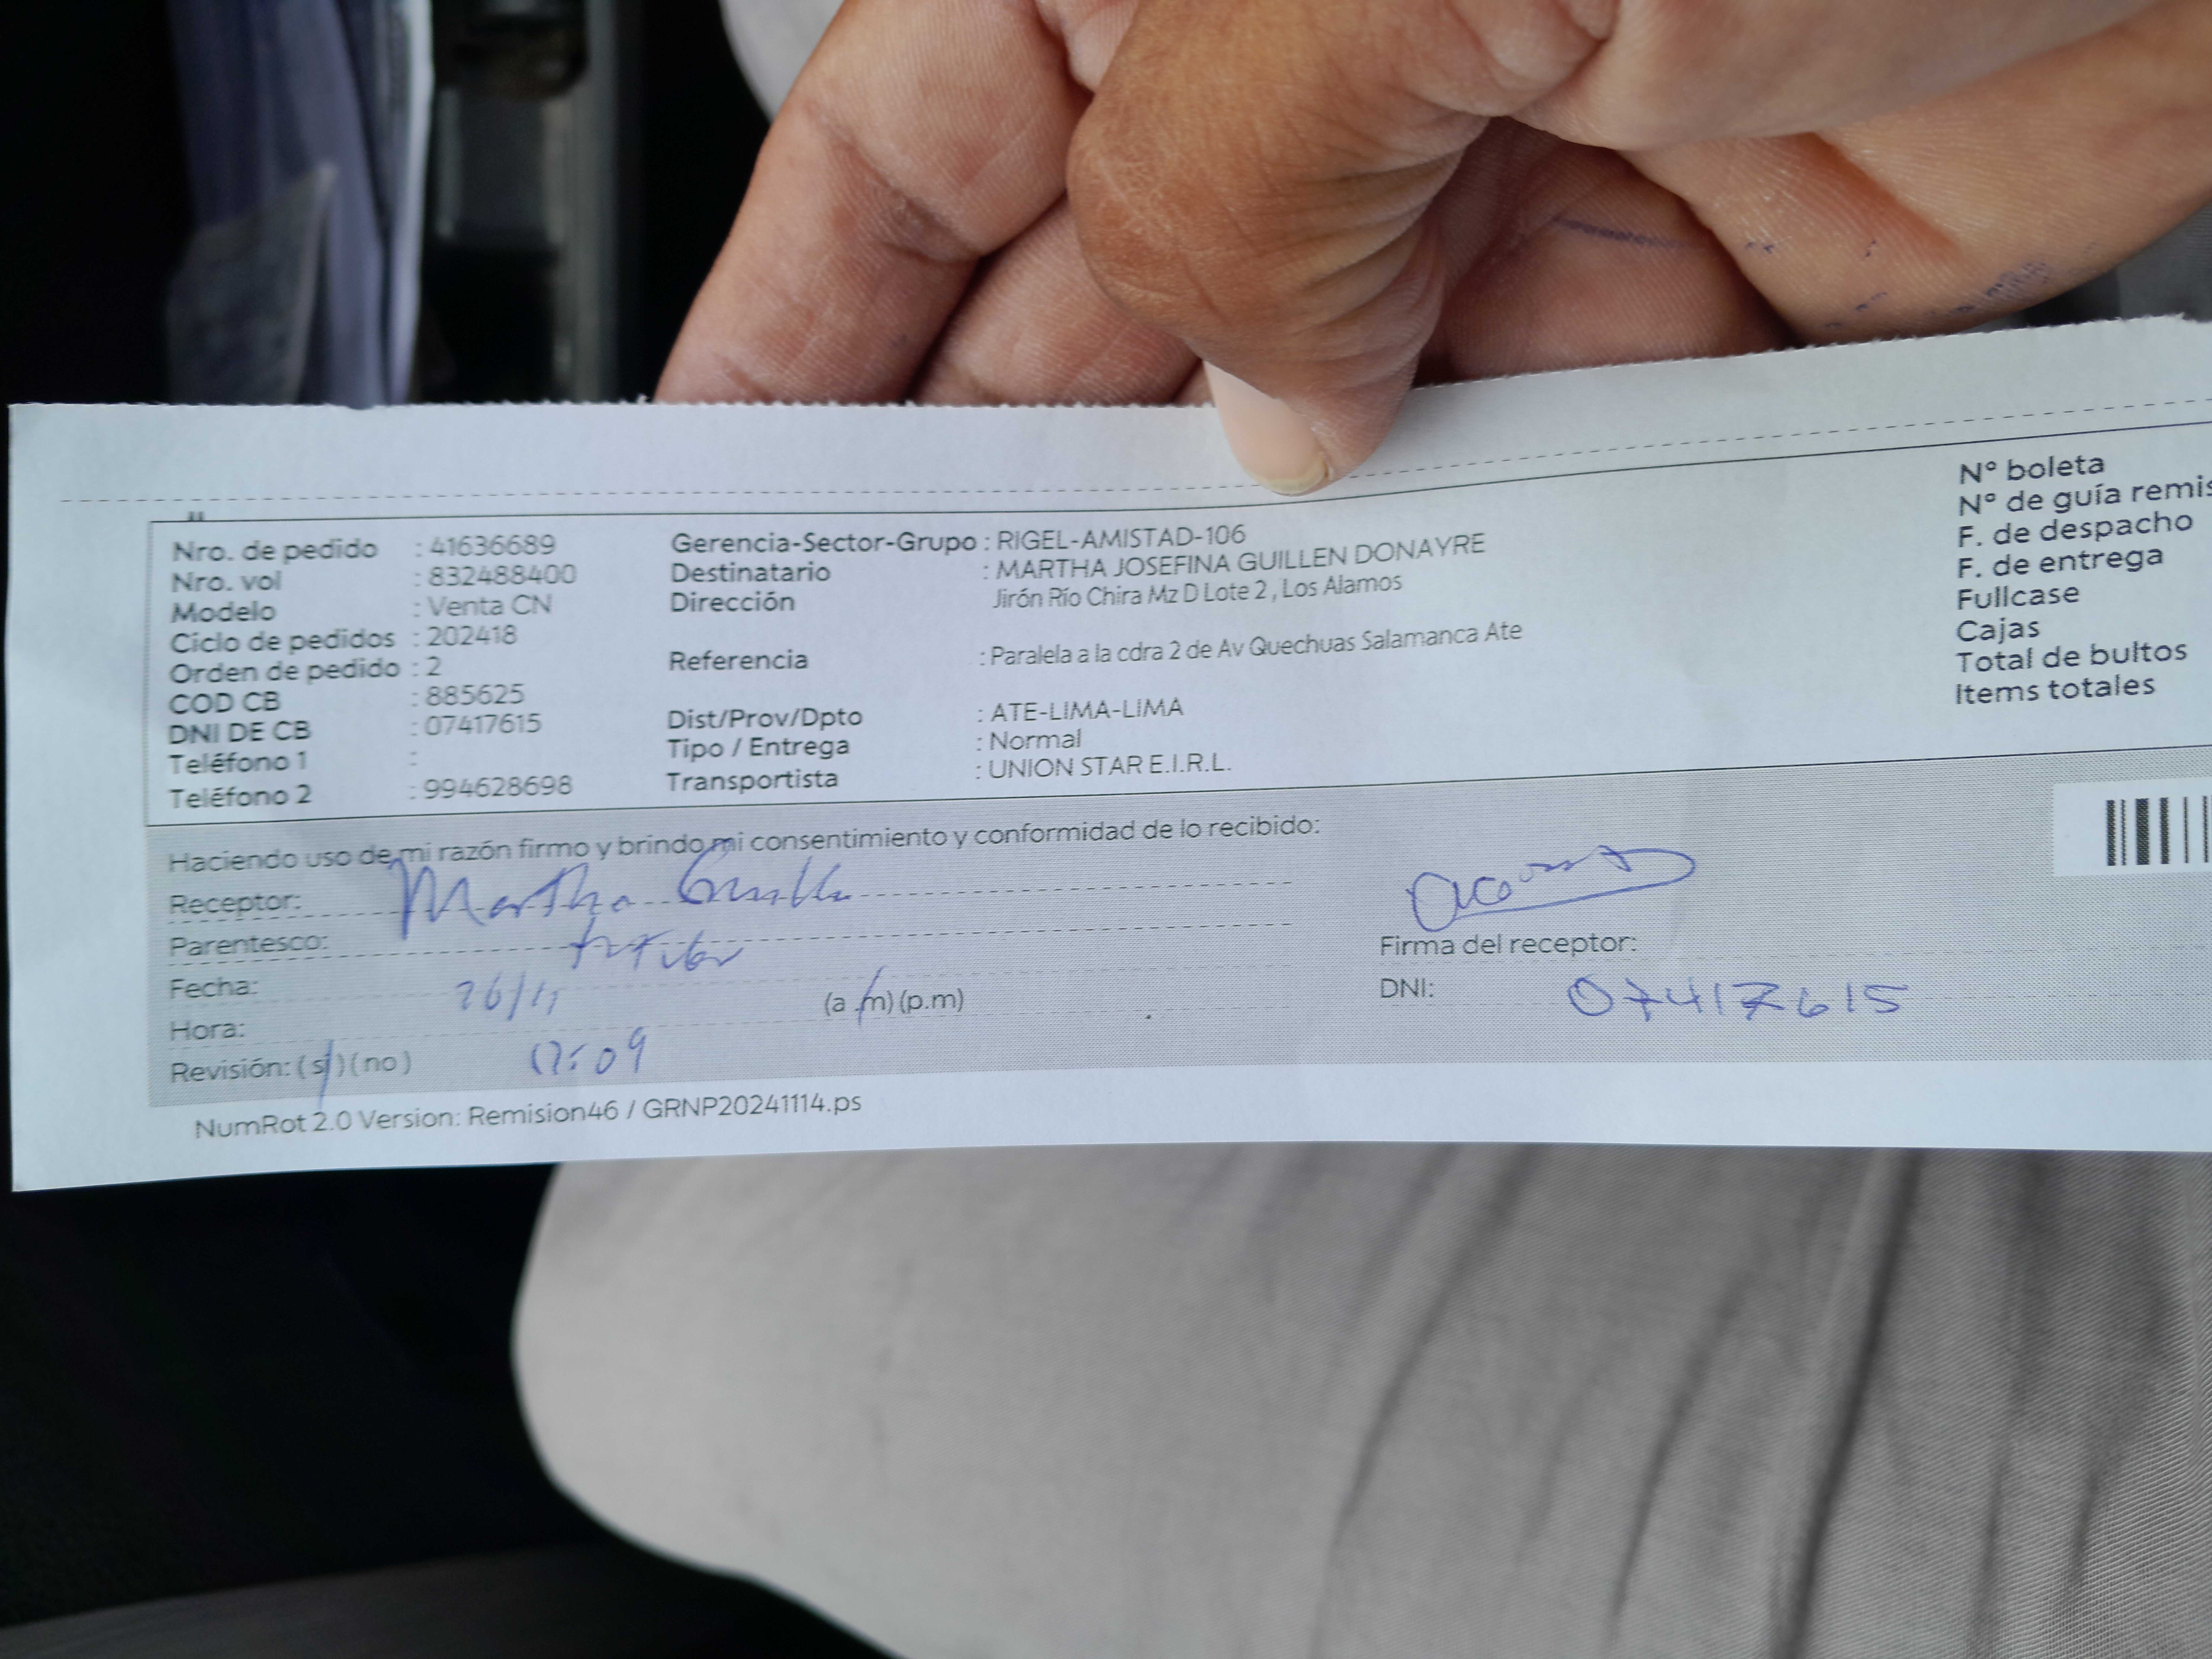 Nro. de pedido : 41636689
Nro. vol : 832488400
Modelo : Venta CN
Ciclo de pedidos : 202418
Orden de pedido : 2
COD CB : 885625
DNI DE CB : 07417615
Teléfono 1 :
Teléfono 2 : 994628698
Gerencia-Sector-Grupo : RIGEL-AMISTAD-106
Destinatario : MARTHA JOSEFINA GUILLEN DONAYRE
Dirección Jirón Río Chira Mz D Lote 2 , Los Alamos
Referencia : Paralela a la cdra 2 de Av Quechuas Salamanca Ate
Dist/Prov/Dpto : ATE-LIMA-LIMA
Tipo / Entrega : Normal
Transportista : UNION STAR E.I.R.L.
N° boleta
N° de guía remis
F. de despacho
F. de entrega
Fullcase
Cajas
Total de bultos
Items totales
Haciendo uso de mi razón firmo y brindo mi consentimiento y conformidad de lo recibido:
Receptor: Martha Guillen
Parentesco:
Fecha: 26/11
Hora: (a .m) (p.m)
Revisión: ( si ) ( no )
Firma del receptor:
DNI: 07417615
NumRot 2.0 Version: Remision46 / GRNP20241114.ps